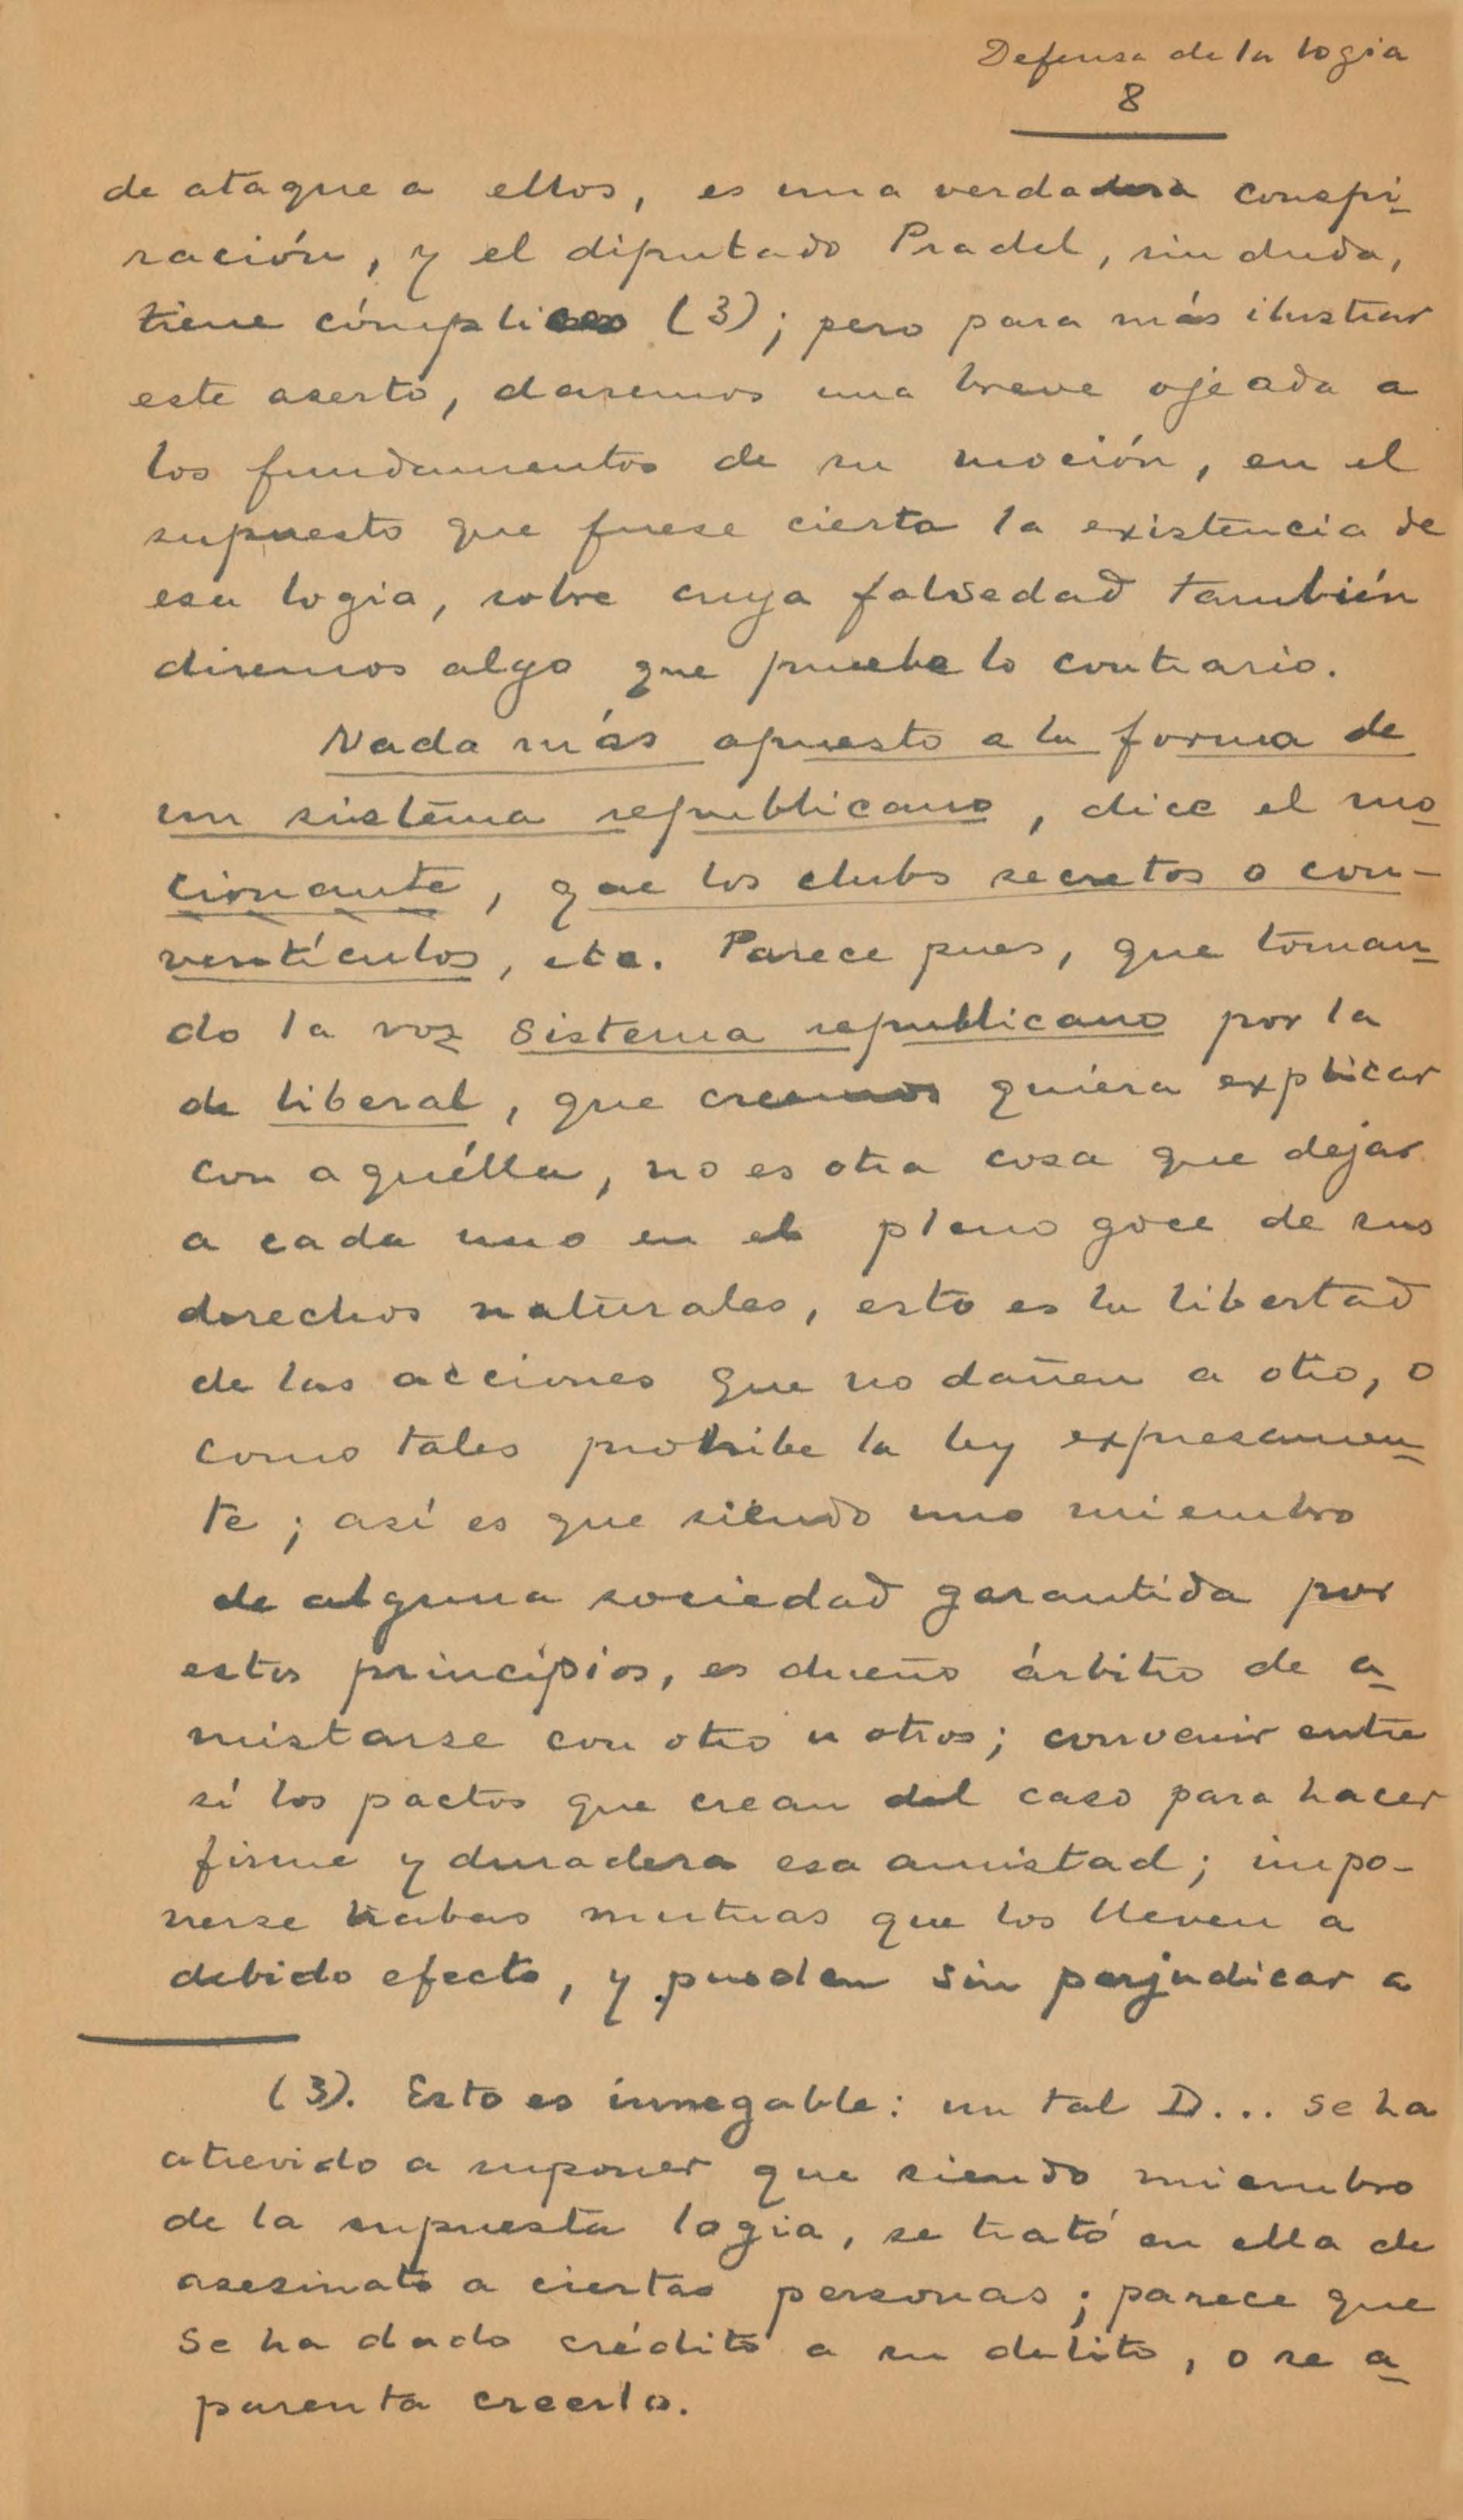 Defensa de la logia
8
de ataque a ellos, es una verdadera conspi-
ración, y el diputado Pradel, sin duda,
tiene cómplices (3); pero para más ilustrar
este aserto, daremos una breve ojeada a
los fundamentos de su moción, en el
supuesto que fuese cierta la existencia de
esa logia, sobre cuya falsedad también
diremos algo que pruebe lo contrario.
Nada más opuesto a la forma de
un sistema republicano, dice el mo-
cionante, que los clubs secretos o con-
ventículos, etc. Parece pues, que toman-
do la voz sistema republicano por la
de liberal, que creemos quiera explicar
con aquélla, no es otra cosa que dejar
a cada uno en el pleno goce de sus
derechos naturales, esto es la libertad
de las acciones que no dañen a otro, o
como tales prohibe la ley expresamen-
te; así es que siendo uno miembro
de alguna sociedad garantida por
estos principios, es dueño árbitro de a-
mistarse con otro u otros; convenir entre
sí los pactos que crean del caso para hacer
firme y duradera esa amistad; impo-
nerse trabas mutuas que los lleven a
debido efecto, y pueden sin perjudicar a
(3). Esto es innegable: un tal D... se ha
atrevido a suponer que siendo miembro
de la supuesta logia, se trató en ella de
asesinato a ciertas personas; parece que
se ha dado crédito a su delito, o se a-
parenta creerlo.